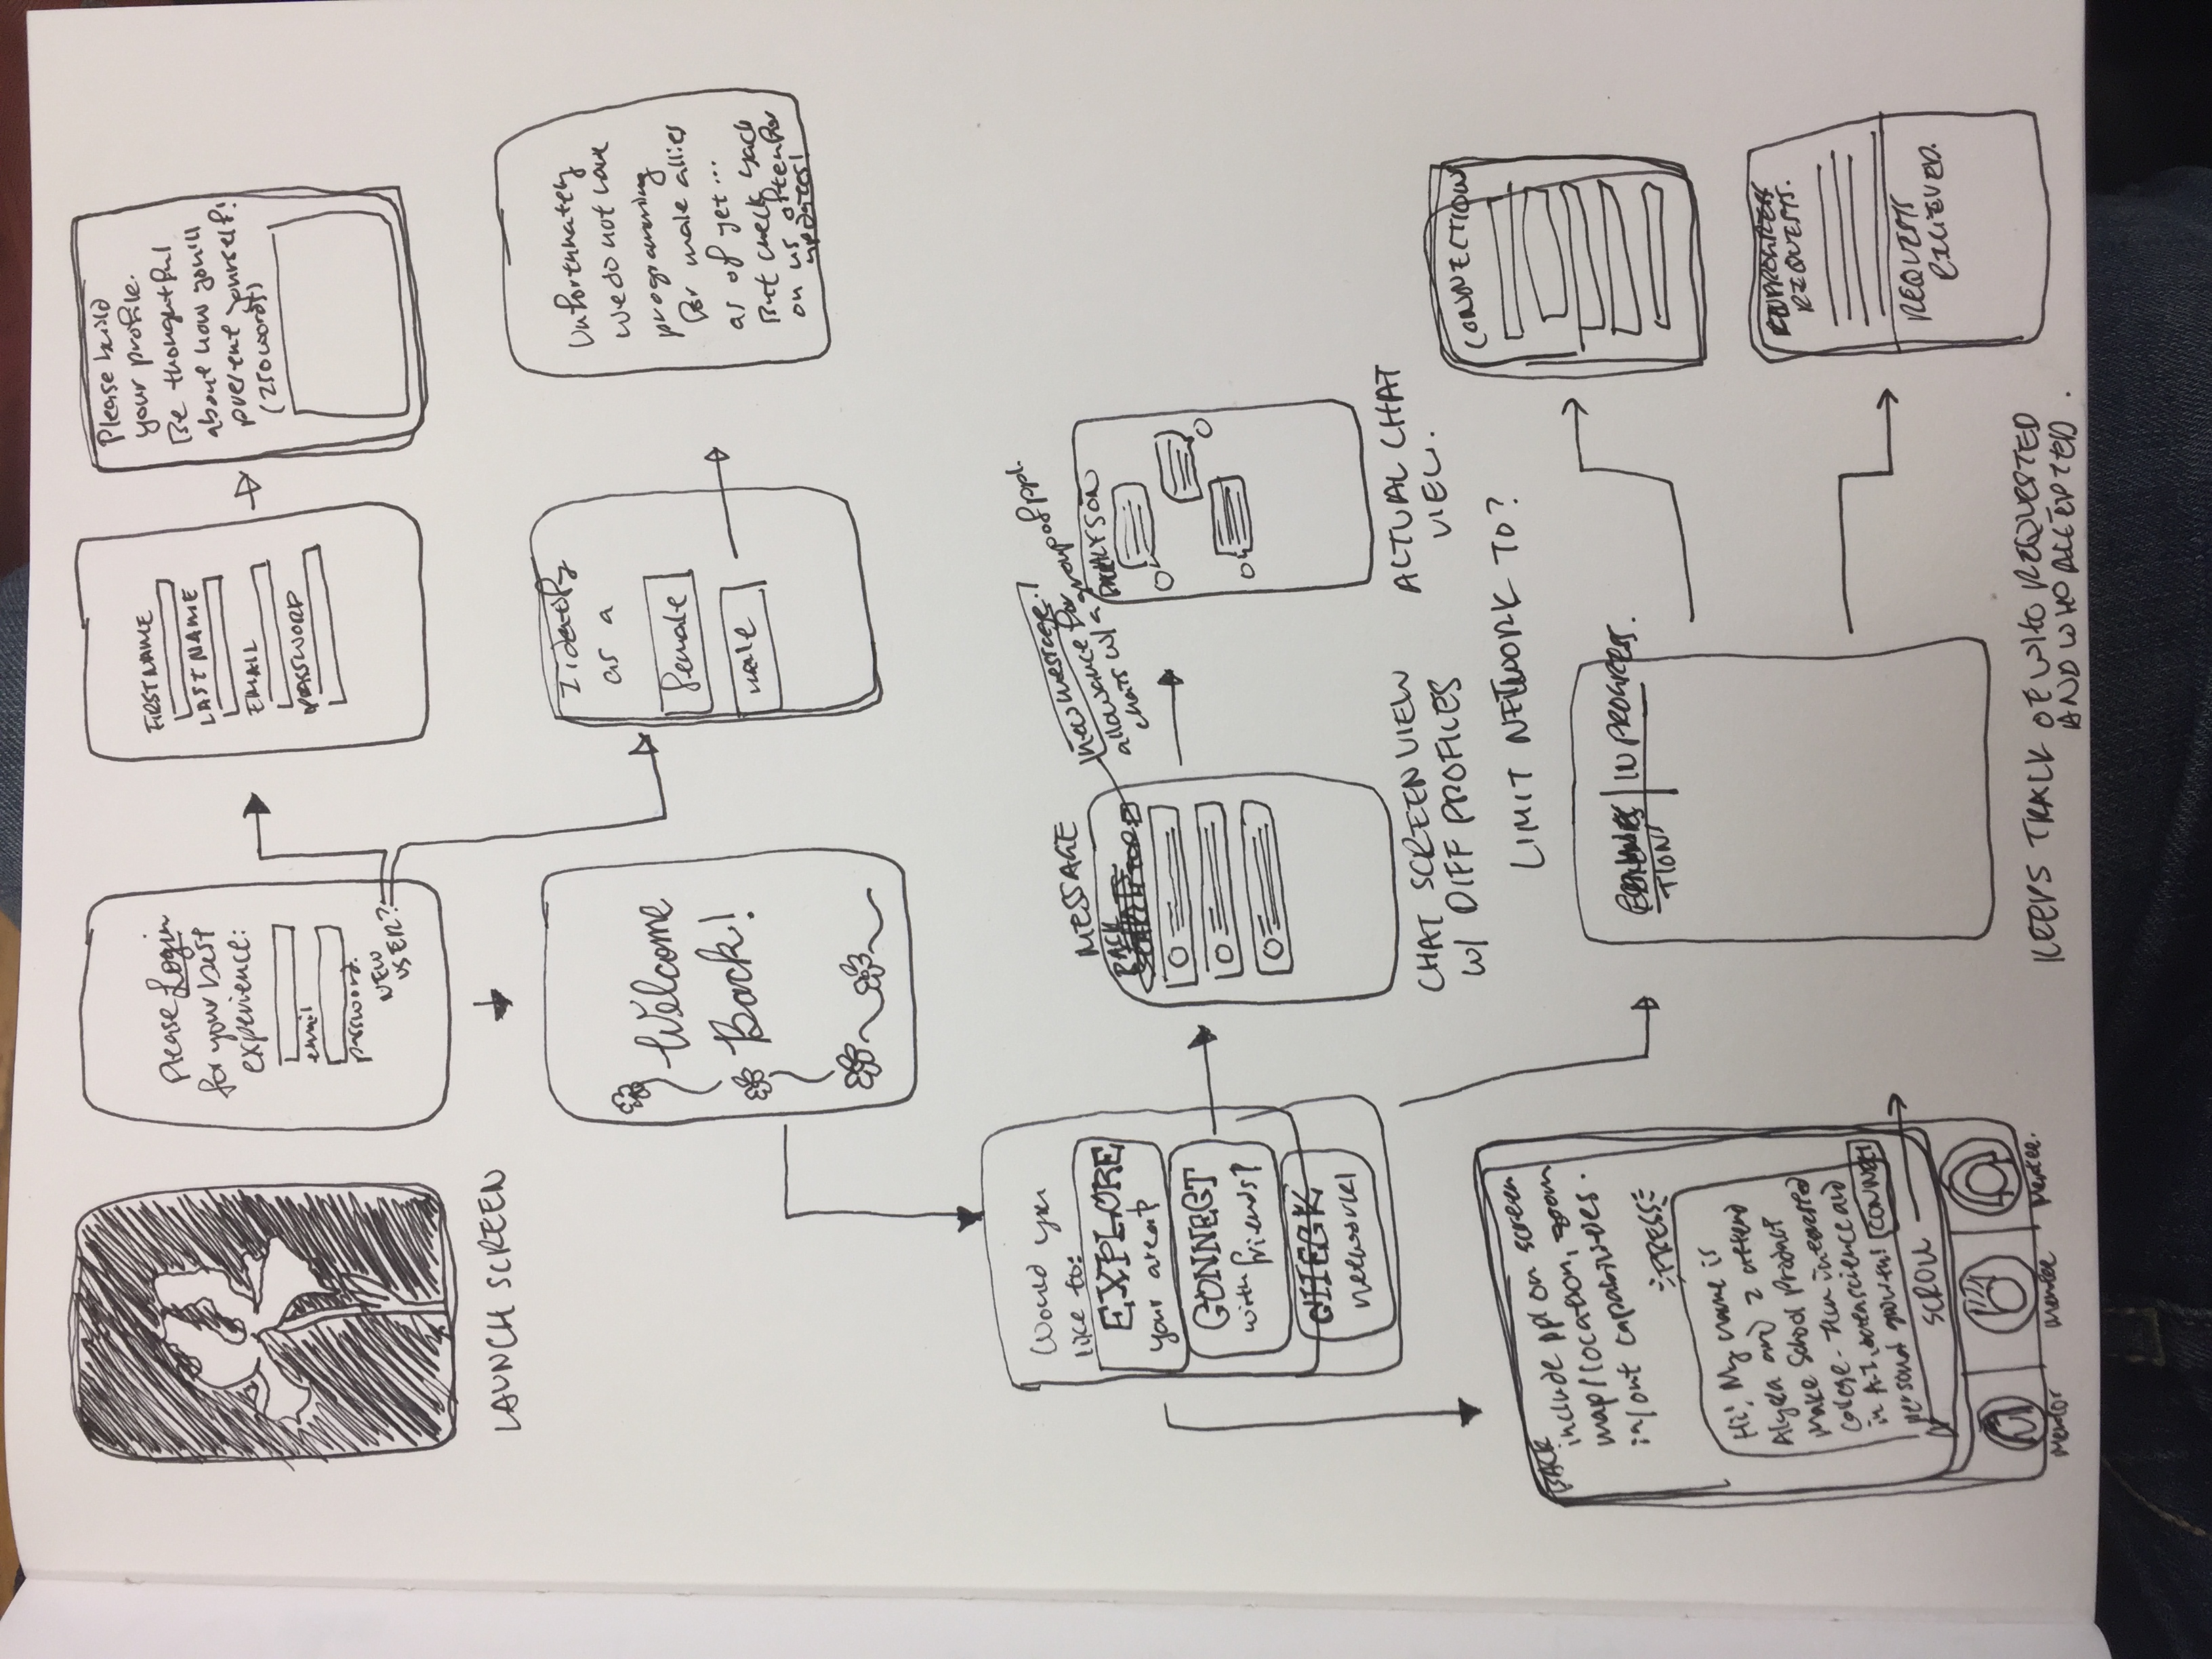 LAUNCH SCREEN
Please Login
for your best
experience:
email
password.
NEW
USER?
FIRST NAME
LAST NAME
EMAIL
PASSWORD
Please build
your profile.
Be thoughtful
about how you'll
present yourself!
(250 words)
Welcome
Back!
I identify
as a
female
male
Unfortunately
we do not have
programming
for male allies
as of yet...
But check back
on us often for
updates!
Would you
like to:
EXPLORE
your area?
CONNECT
with friends?
CHECK
network!
MESSAGE
BACK
new message!
allowance for
chats w/ a group of ppl.
CHAT SCREEN VIEW
W/ DIFF PROFILES
ALYSON
ACTUAL CHAT
VIEW.
BACK
include ppl on screen
map/location, zoom
in/out capabilities.
PRESS
Hi! My name is
and I attend
Make School Product
College. I'm interested
in A.I, data science and
personal growth!
CONNECT
SCROLL
Mentor
Mentee
Mentee.
LIMIT NETWORK TO?
TIONS
IN PROGRESS.
KEEPS TRACK OF WHO REQUESTED
AND WHO ACCEPTED.
CONNECTIONS
INPROGRESS
REQUESTS.
REQUESTS
RECIEVED.